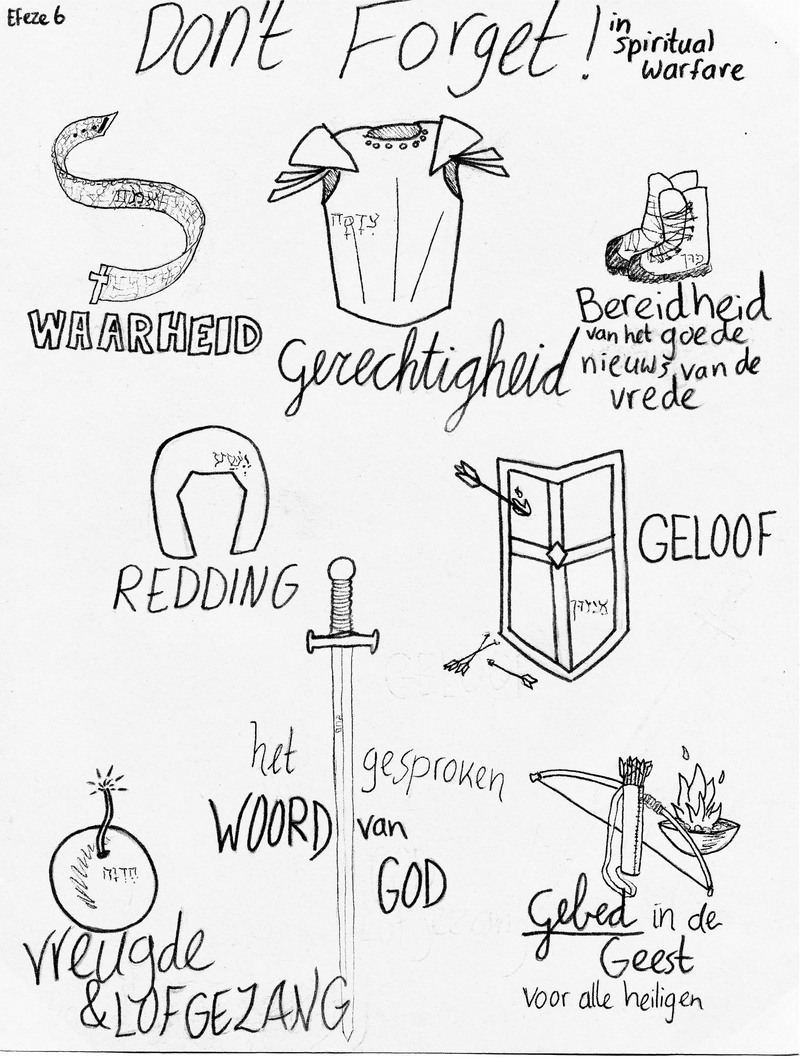 Efeze 6
Don't Forget!
in
spiritual
warfare
WAARHEID
צדקה
Gerechtigheid
Bereidheid
van het goede
nieuws van de
vrede
REDDING
GELOOF
het gesproken
WOORD van
GOD
vreugde
& LOFGEZANG
Gebed in de
Geest
voor alle heiligen